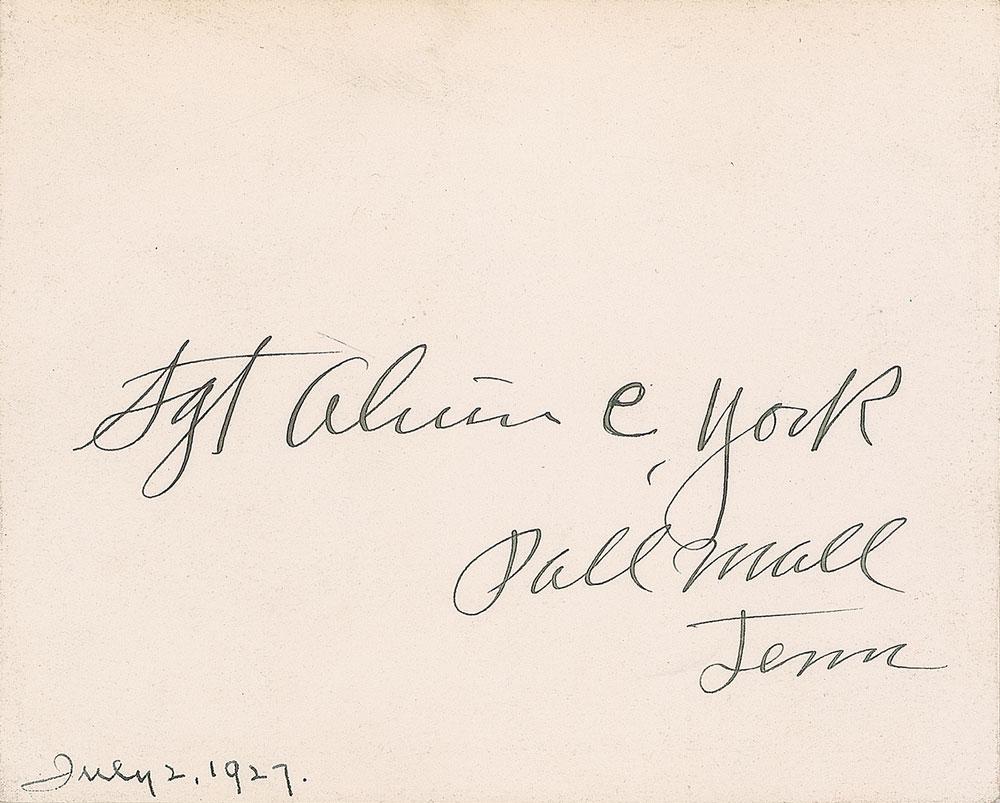 Sgt Alvin C. York
Pall Mall
Tenn
July 2, 1927.